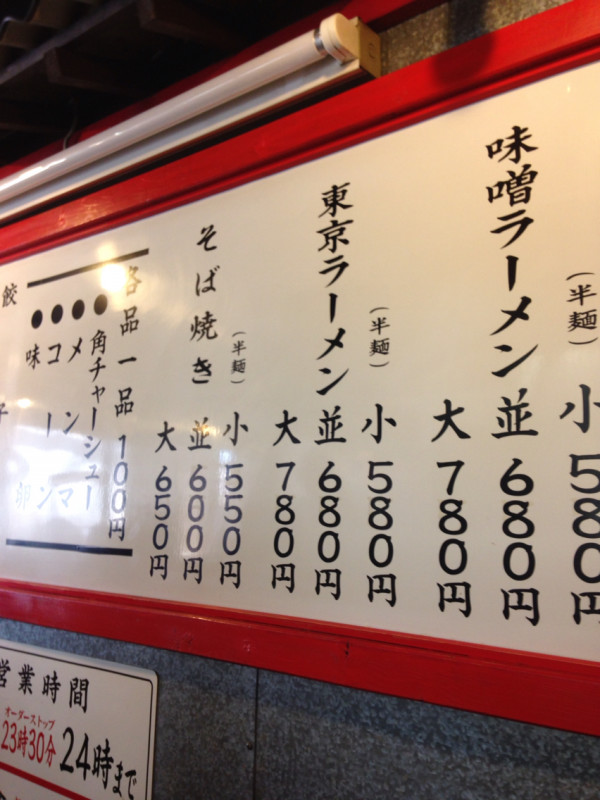 味噌ラーメン
(半麺)
小 580円
並 680円
大 780円
東京ラーメン
(半麺)
小 580円
並 680円
大 780円
そば焼き
(半麺)
小 550円
並 600円
大 650円
各品一品 100円
●角チャーシュー
●メンマ
●コーン
●味卵
餃子
営業時間
オーダーストップ
23時30分
24時まで